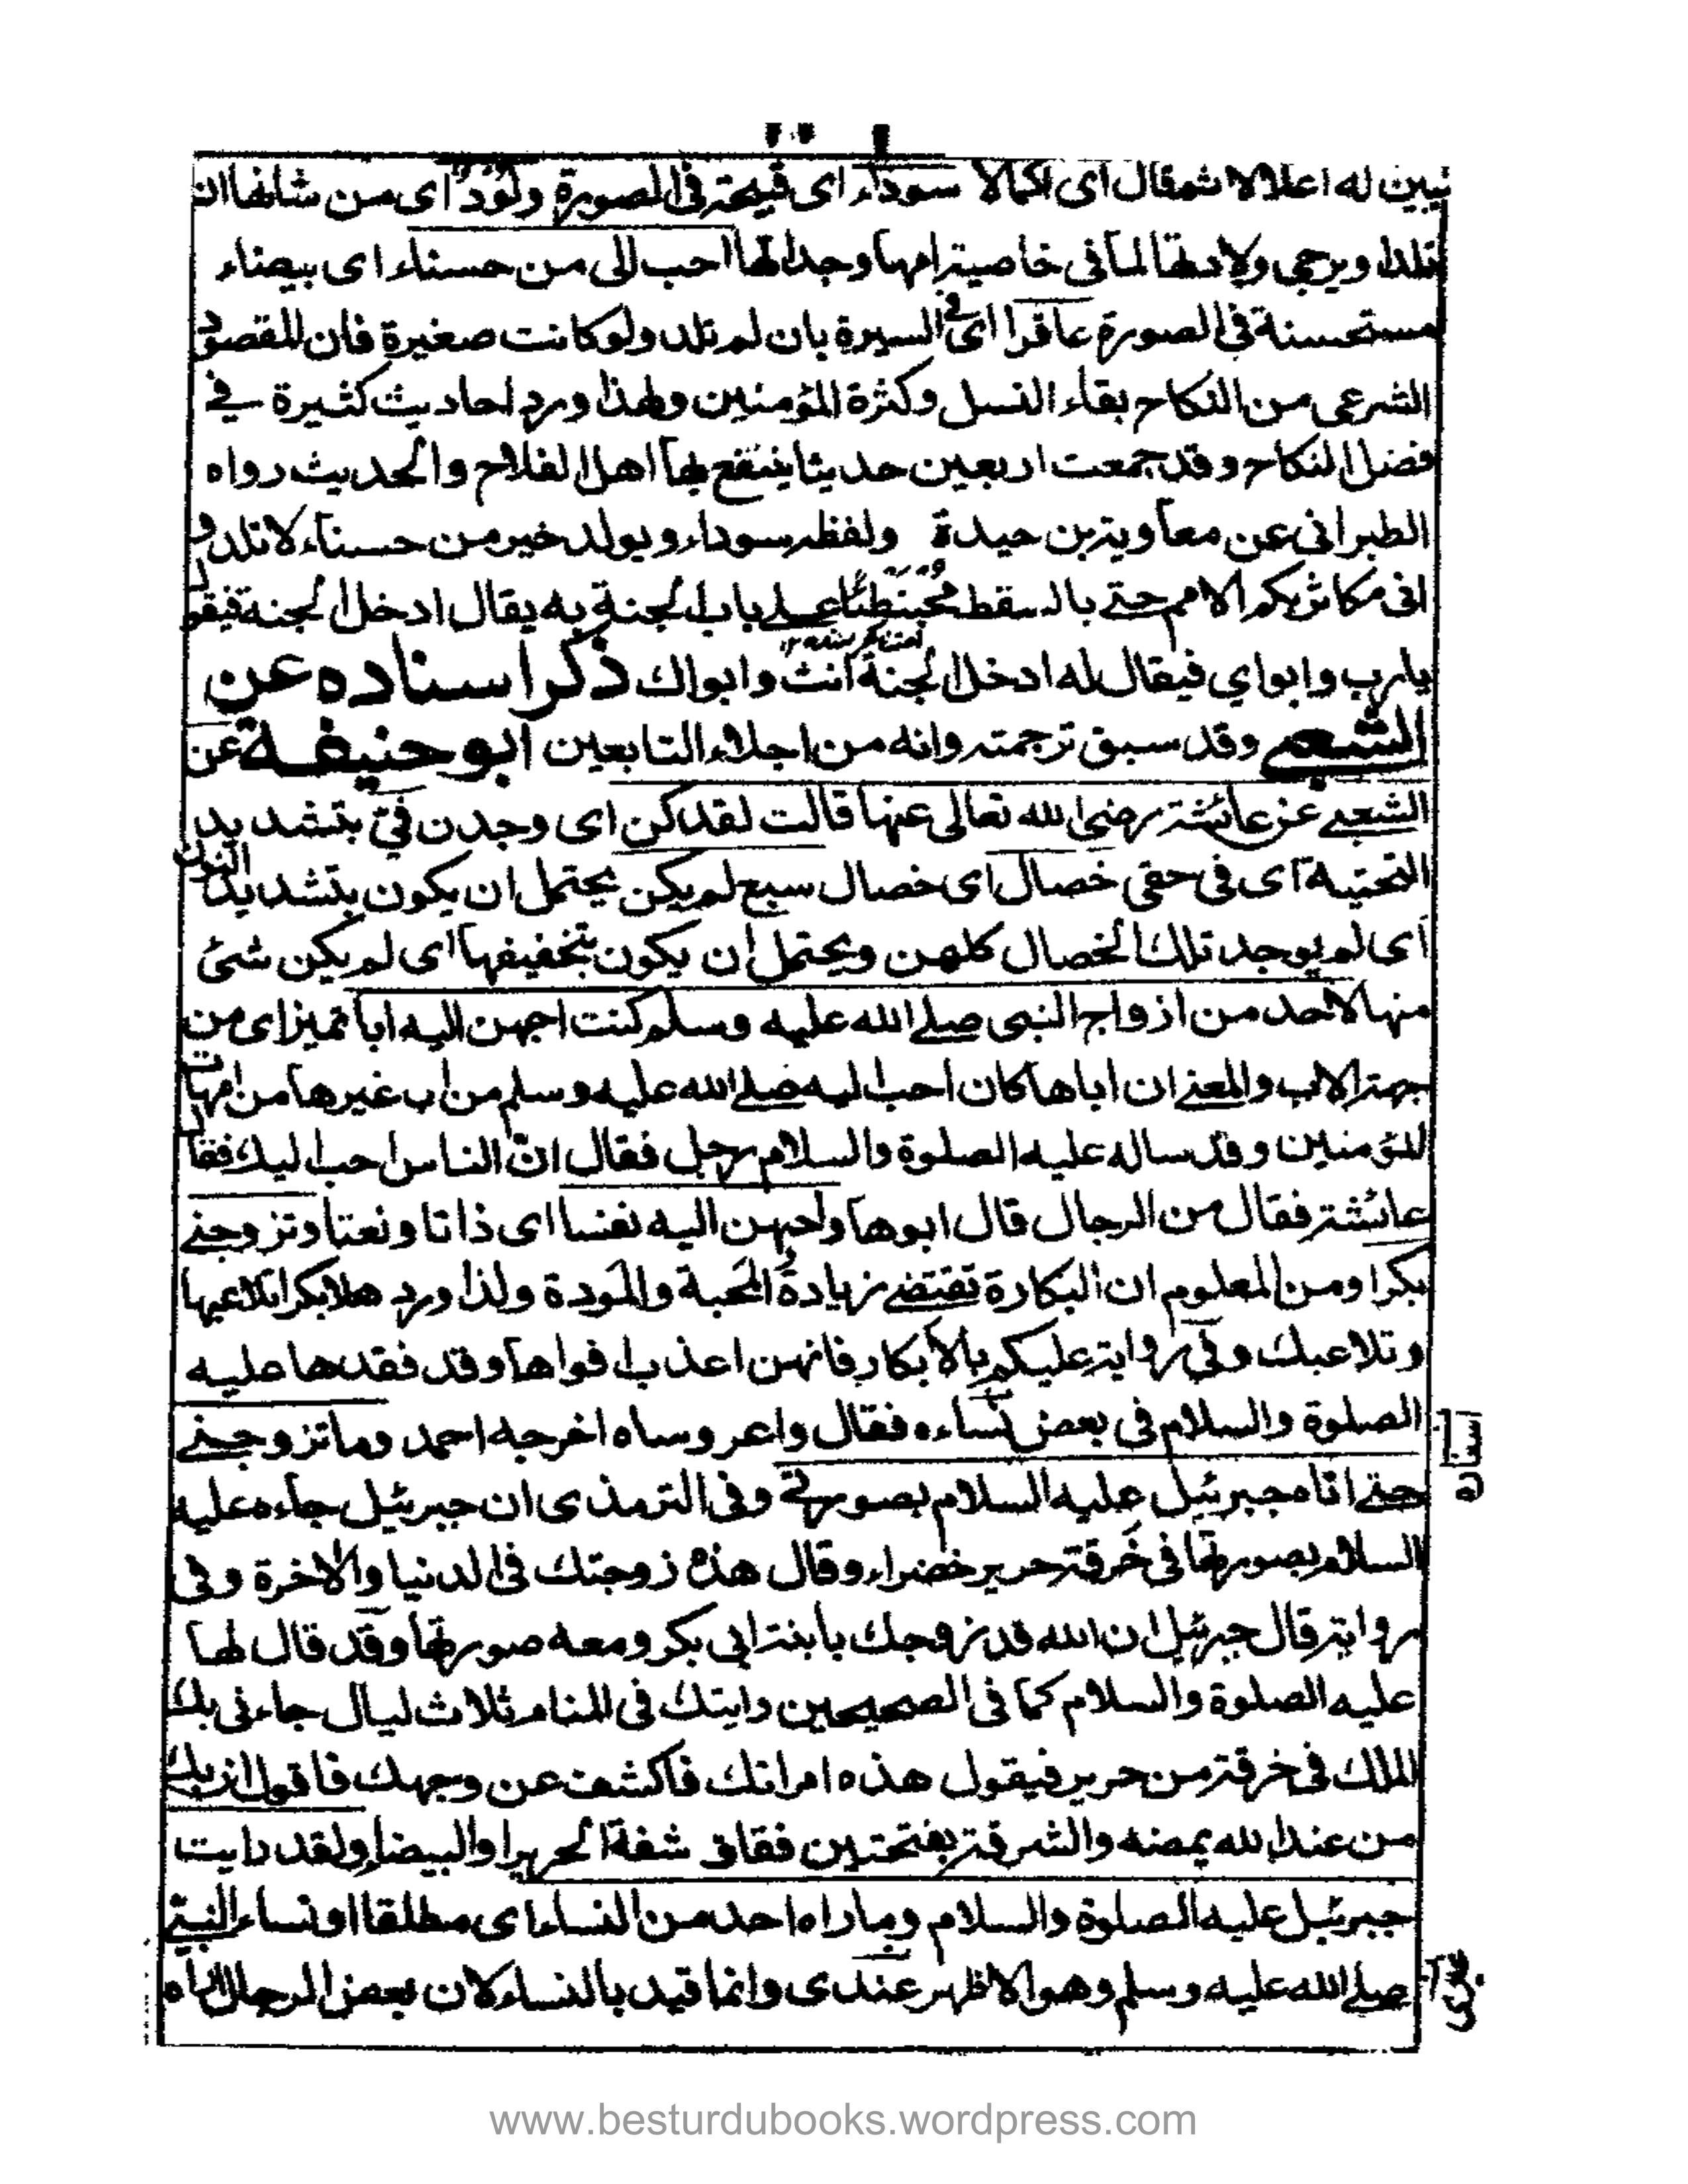 تبين له اعلالا ثم قال اى اكمالا سوداء اى قبيحة فى الصورة ولود اى من شانها ان
تلد ويرجى ولادتها لما فى خاصية امها وجداتها احب الى من حسناء اى بيضاء
مستحسنة فى الصورة عاقرا اى فى السيرة بان لم تلد ولو كانت صغيرة فان المقصود
الشرعى من النكاح بقاء النسل وكثرة المؤمنين ولهذا ورد احاديث كثيرة فى
فضل النكاح وقد جمعت اربعين حديثا ينتفع بها اهل الفلاح والحديث رواه
الطبرانى عن معاوية بن حيدة ولفظه سوداء ويولد خير من حسناء لا تلد و
انى مكاثر بكم الامم حتى بالسقط محبنطئا على باب الجنة به يقال ادخل الجنة فيقول
يارب وابواي فيقال له ادخل الجنة انت وابواك ذكر اسناده عن
الشعبى وقد سبق ترجمته وانه من اجلاء التابعين ابو حنيفة عن
الشعبى عن عائشة رضى الله تعالى عنها قالت لقد كن اى وجدن فيّ بتشديد
التحتية اى فى حقى خصال اى خصال سبع لم يكن يحتمل ان يكون بتشديد النون
اى لم يوجد تلك الخصال كلهن ويحتمل ان يكون بتخفيفها اى لم يكن شئ
منها لاحد من ازواج النبى صلى الله عليه وسلم كنت احبهن اليه ابا تميزا اى من
جهة الاب والمعنى ان اباها كان احب اليه صلى الله عليه وسلم من اب غيرها من امهات
المؤمنين وقد ساله عليه الصلوة والسلام رجل فقال ان الناس احب اليك فقال
عائشة فقال من الرجال قال ابوها واحبهن اليه نفسا اى ذاتا ونعتا وتزوجنى
بكرا ومن المعلوم ان البكارة تقتضى زيادة المحبة والمودة ولذا ورد هلا بكرا تلاعبها
وتلاعبك وفى رواية عليكم بالابكار فانهن اعذب افواها وقد فقدها عليه
الصلوة والسلام فى بعض نساءه فقال واعروساه اخرجه احمد وما تزوجنى
حتى اتاه جبرئيل عليه السلام بصورتى وفى الترمذى ان جبرئيل جاءه عليه
السلام بصورتها فى خرقة حرير خضراء وقال هذه زوجتك فى الدنيا والاخرة وفى
رواية قال جبرئيل ان الله قد زوجك بابنة ابى بكر ومعه صورتها وقد قال لها
عليه الصلوة والسلام كما فى الصحيحين رايتك فى المنام ثلاث ليال جاءنى بك
الملك فى خرقة من حرير فيقول هذه امراتك فاكشف عن وجهك فاقول ان يك
من عند الله يمضه والشرقة بفتحتين فقاف شفة الحرير والبيضاء ولقد رايت
جبرئيل عليه الصلوة والسلام وما راه احد من النساء اى مطلقا او نساء النبى
صلى الله عليه وسلم وهو الاظهر عندى وانما قيد بالنساء لان بعض الرجال راه
www.besturdubooks.wordpress.com